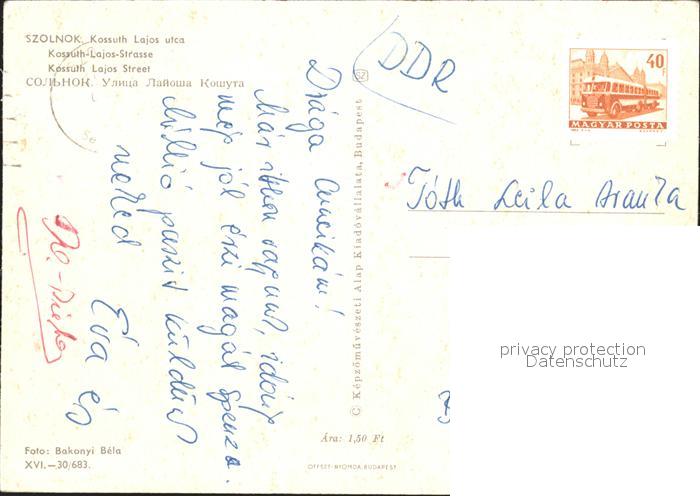 SZOLNOK. Kossuth Lajos utca
Kossuth-Lajos-Strasse
Kossuth Lajos Street
СОЛЬНОК. Улица Лайоша Кошута
DDR
40 F
MAGYAR POSTA
Drága Cuncikám!
Már itthon vagyunk, idáig
még jól érzi magát Spenza.
Millió puszit küldünk
neked
Éva és
Tóth Leila Aranka
© Képzőművészeti Alap Kiadóvállalata, Budapest
privacy protection
Datenschutz
Ára: 1,50 Ft
OFFSET-NYOMDA, BUDAPEST
Foto: Bakonyi Béla
XVI.—30/683.